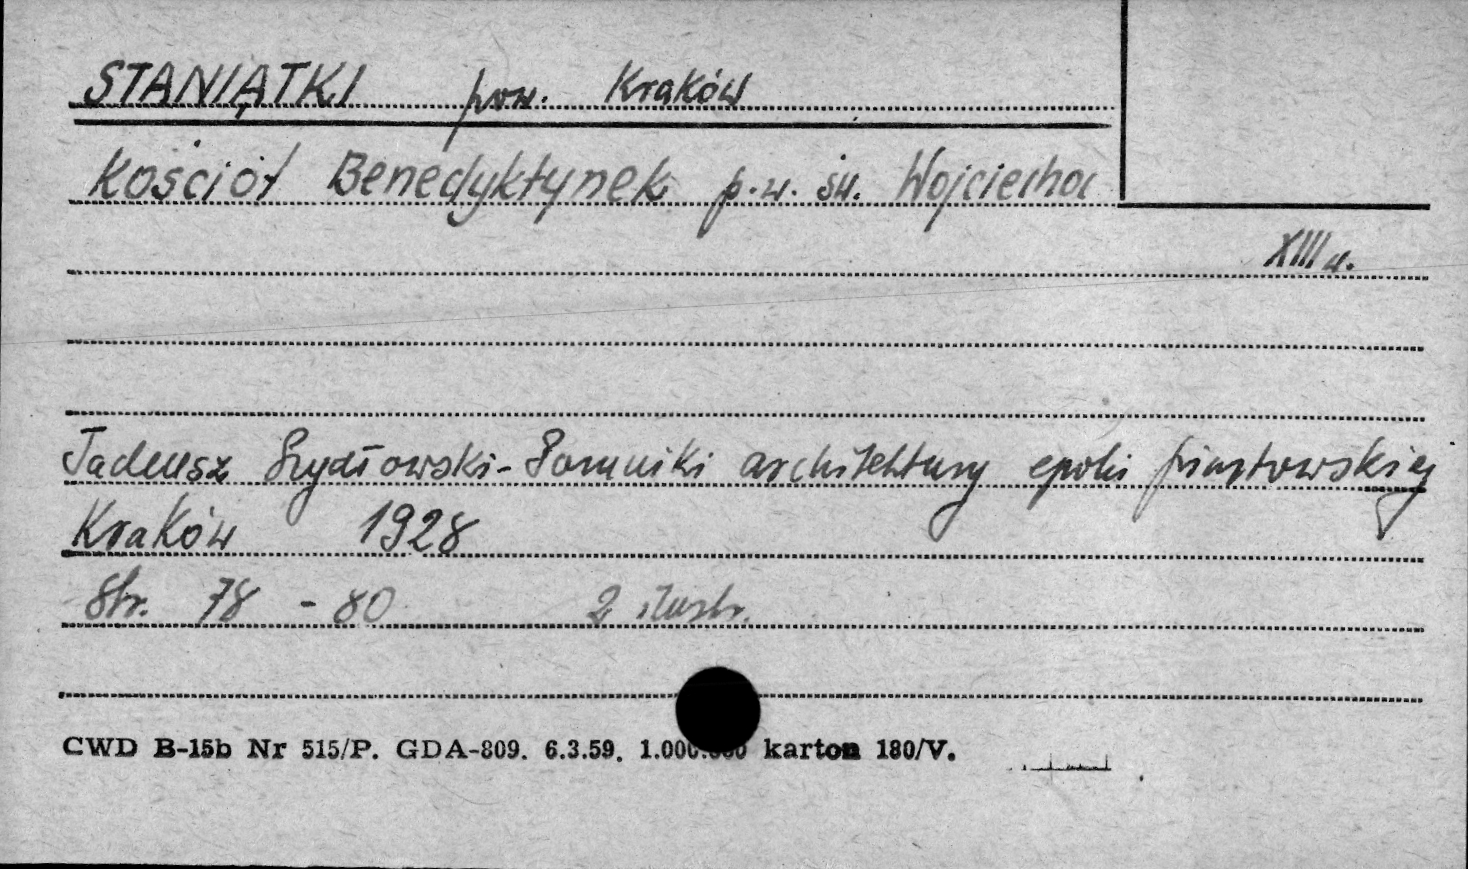 STANIĄTKI pow. Kraków
Kościół Benedyktynek p.w. św. Wojciecha
XIII w.
Tadeusz Szydłowski - Pomniki architektury epoki piastowskiej
Kraków 1928
Str. 78 - 80 2 ilustr.
CWD B-15b Nr 515/P. GDA-809. 6.3.59. 1.000.000 karton 180/V.